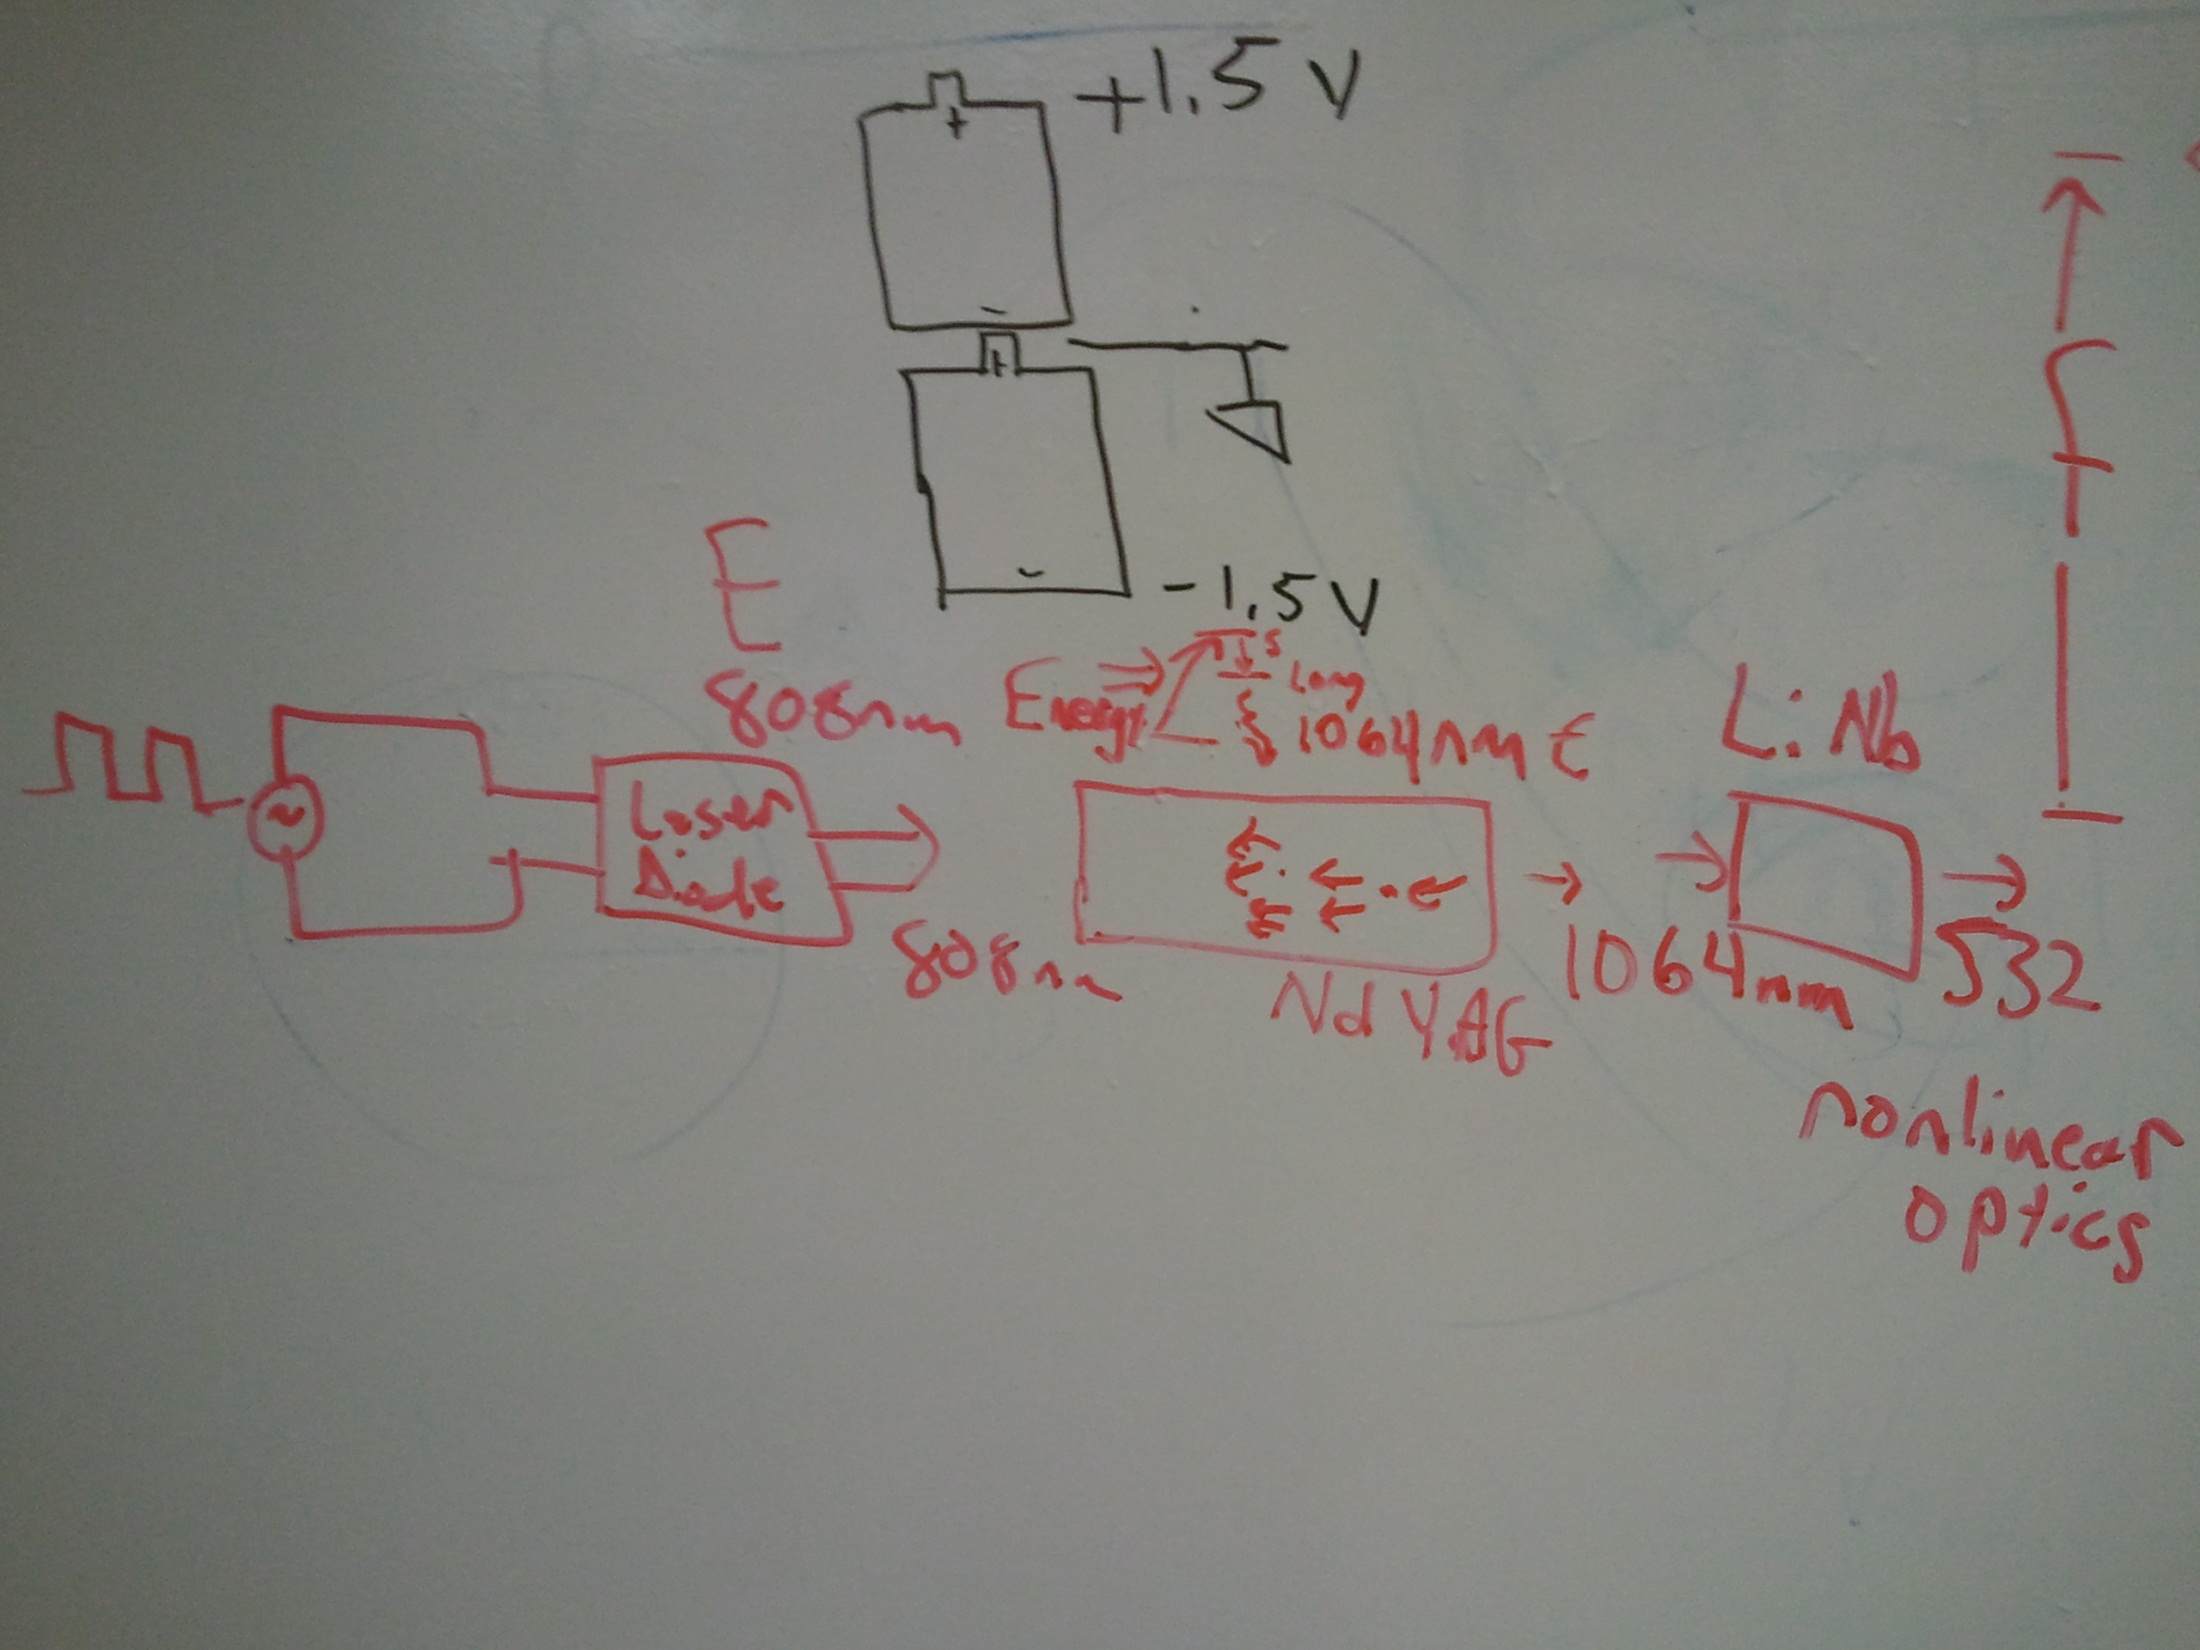 +1.5 V
+
-
+
-
-1.5 V
E
808nm
Energy
s
Long
1064nm E
Li Nb
f
~
Laser
Diode
808nm
Nd YAG
1064nm
532
nonlinear
optics